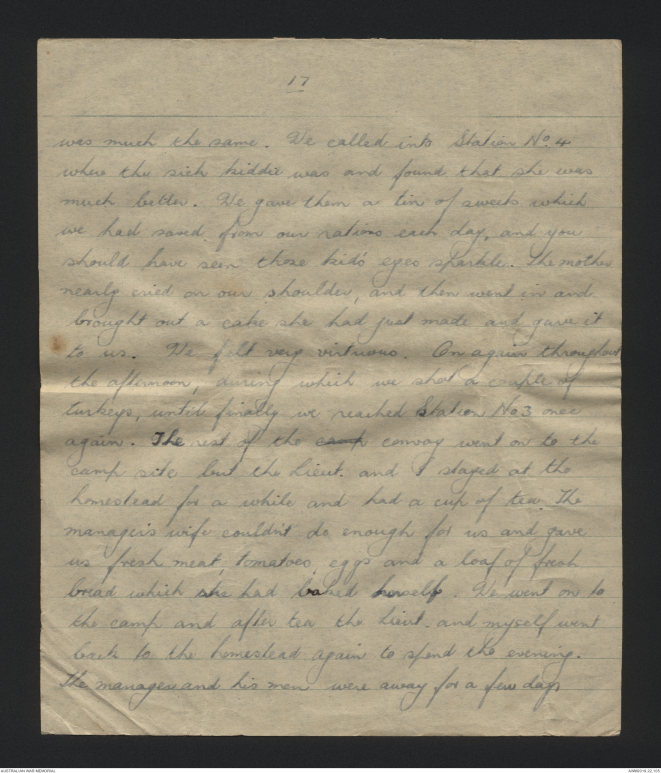 17
was much the same. We called into Station No. 4
where the sick kiddie was and found that she was
much better. We gave them a tin of sweets which
we had saved from our rations each day, and you
should have seen those kid's eyes sparkle. The mother
nearly cried on our shoulder, and then went in and
brought out a cake she had just made and gave it
to us. We felt very virtuous. On again throughout
the afternoon, during which we shot a couple of
turkeys, until finally we reached Station No 3 once
again. The rest of the camp convoy went on to the
camp site but the Lieut. and I stayed at the
homestead for a while and had a cup of tea. The
manager's wife couldn't do enough for us and gave
us fresh meat, tomatoes, eggs and a loaf of fresh
bread which she had baked herself. We went on to
the camp and after tea the Lieut. and myself went
back to the homestead again to spend the evening.
The manager and his men were away for a few days
AUSTRALIAN WAR MEMORIAL